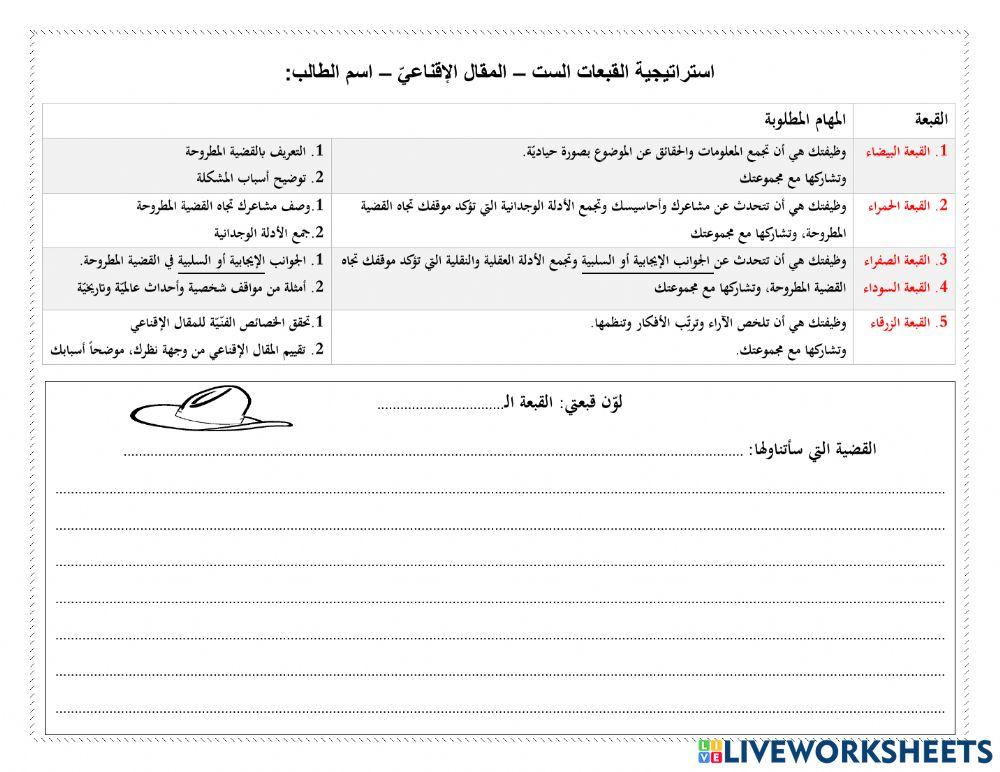 استراتيجية القبعات الست – المقال الإقناعيّ – اسم الطالب:
القبعة
المهام المطلوبة
1. القبعة البيضاء
وظيفتك هي أن تجمع المعلومات والحقائق عن الموضوع بصورة حياديّة.
وتشاركها مع مجموعتك
1. التعريف بالقضية المطروحة
2. توضيح أسباب المشكلة
2. القبعة الحمراء
وظيفتك هي أن تتحدث عن مشاعرك وأحاسيسك وتجمع الأدلة الوجدانية التي تؤكد موقفك تجاه القضية
المطروحة، وتشاركها مع مجموعتك
1.وصف مشاعرك تجاه القضية المطروحة
2.جمع الأدلة الوجدانية
3. القبعة الصفراء
4. القبعة السوداء
وظيفتك هي أن تتحدث عن الجوانب الإيجابية أو السلبية وتجمع الأدلة العقلية والنقلية التي تؤكد موقفك تجاه
القضية المطروحة، وتشاركها مع مجموعتك
1. الجوانب الإيجابية أو السلبية في القضية المطروحة.
2. أمثلة من مواقف شخصية وأحداث عالميّة وتاريخيّة
5. القبعة الزرقاء
وظيفتك هي أن تلخص الآراء وترتّب الأفكار وتنظمها.
وتشاركها مع مجموعتك.
1.تحقق الخصائص الفنّيّة للمقال الإقناعي
2. تقييم المقال الإقناعي من وجهة نظرك، موضحاً أسبابك
لوّن قبعتي: القبعة الـ..................................
القضية التي سأتناولها: ..................................
LIVEWORKSHEETS